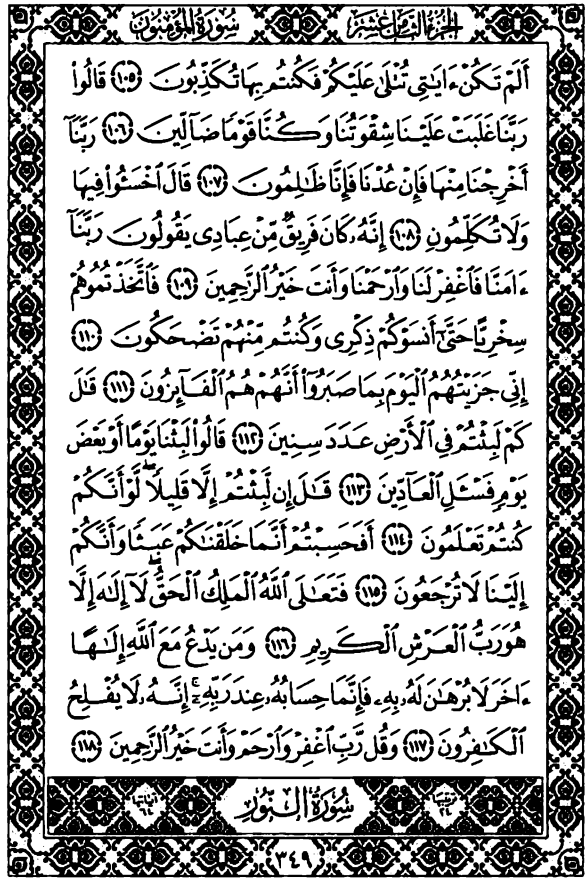 الجزء الثامن عشر سورة المؤمنون
أَلَمْ تَكُنْ ءَايَٰتِى تُتْلَىٰ عَلَيْكُمْ فَكُنتُم بِهَا تُكَذِّبُونَ ﴿١٠٥﴾ قَالُوا۟
رَبَّنَا غَلَبَتْ عَلَيْنَا شِقْوَتُنَا وَكُنَّا قَوْمًا ضَآلِّينَ ﴿١٠٦﴾ رَبَّنَآ
أَخْرِجْنَا مِنْهَا فَإِنْ عُدْنَا فَإِنَّا ظَٰلِمُونَ ﴿١٠٧﴾ قَالَ ٱخْسَـُٔوا۟ فِيهَا
وَلَا تُكَلِّمُونِ ﴿١٠٨﴾ إِنَّهُۥ كَانَ فَرِيقٌ مِّنْ عِبَادِى يَقُولُونَ رَبَّنَآ
ءَامَنَّا فَٱغْفِرْ لَنَا وَٱرْحَمْنَا وَأَنتَ خَيْرُ ٱلرَّٰحِمِينَ ﴿١٠٩﴾ فَٱتَّخَذْتُمُوهُمْ
سِخْرِيًّا حَتَّىٰٓ أَنسَوْكُمْ ذِكْرِى وَكُنتُم مِّنْهُمْ تَضْحَكُونَ ﴿١١٠﴾
إِنِّى جَزَيْتُهُمُ ٱلْيَوْمَ بِمَا صَبَرُوٓا۟ أَنَّهُمْ هُمُ ٱلْفَآئِزُونَ ﴿١١١﴾ قَٰلَ
كَمْ لَبِثْتُمْ فِى ٱلْأَرْضِ عَدَدَ سِنِينَ ﴿١١٢﴾ قَالُوا۟ لَبِثْنَا يَوْمًا أَوْ بَعْضَ
يَوْمٍ فَسْـَٔلِ ٱلْعَآدِّينَ ﴿١١٣﴾ قَٰلَ إِن لَّبِثْتُمْ إِلَّا قَلِيلًا ۖ لَّوْ أَنَّكُمْ
كُنتُمْ تَعْلَمُونَ ﴿١١٤﴾ أَفَحَسِبْتُمْ أَنَّمَا خَلَقْنَٰكُمْ عَبَثًا وَأَنَّكُمْ
إِلَيْنَا لَا تُرْجَعُونَ ﴿١١٥﴾ فَتَعَٰلَى ٱللَّهُ ٱلْمَلِكُ ٱلْحَقُّ ۖ لَآ إِلَٰهَ إِلَّا
هُوَ رَبُّ ٱلْعَرْشِ ٱلْكَرِيمِ ﴿١١٦﴾ وَمَن يَدْعُ مَعَ ٱللَّهِ إِلَٰهًا
ءَاخَرَ لَا بُرْهَٰنَ لَهُۥ بِهِۦ فَإِنَّمَا حِسَابُهُۥ عِندَ رَبِّهِۦٓ ۚ إِنَّهُۥ لَا يُفْلِحُ
ٱلْكَٰفِرُونَ ﴿١١٧﴾ وَقُل رَّبِّ ٱغْفِرْ وَٱرْحَمْ وَأَنتَ خَيْرُ ٱلرَّٰحِمِينَ ﴿١١٨﴾
سورة النور
٣٤٩